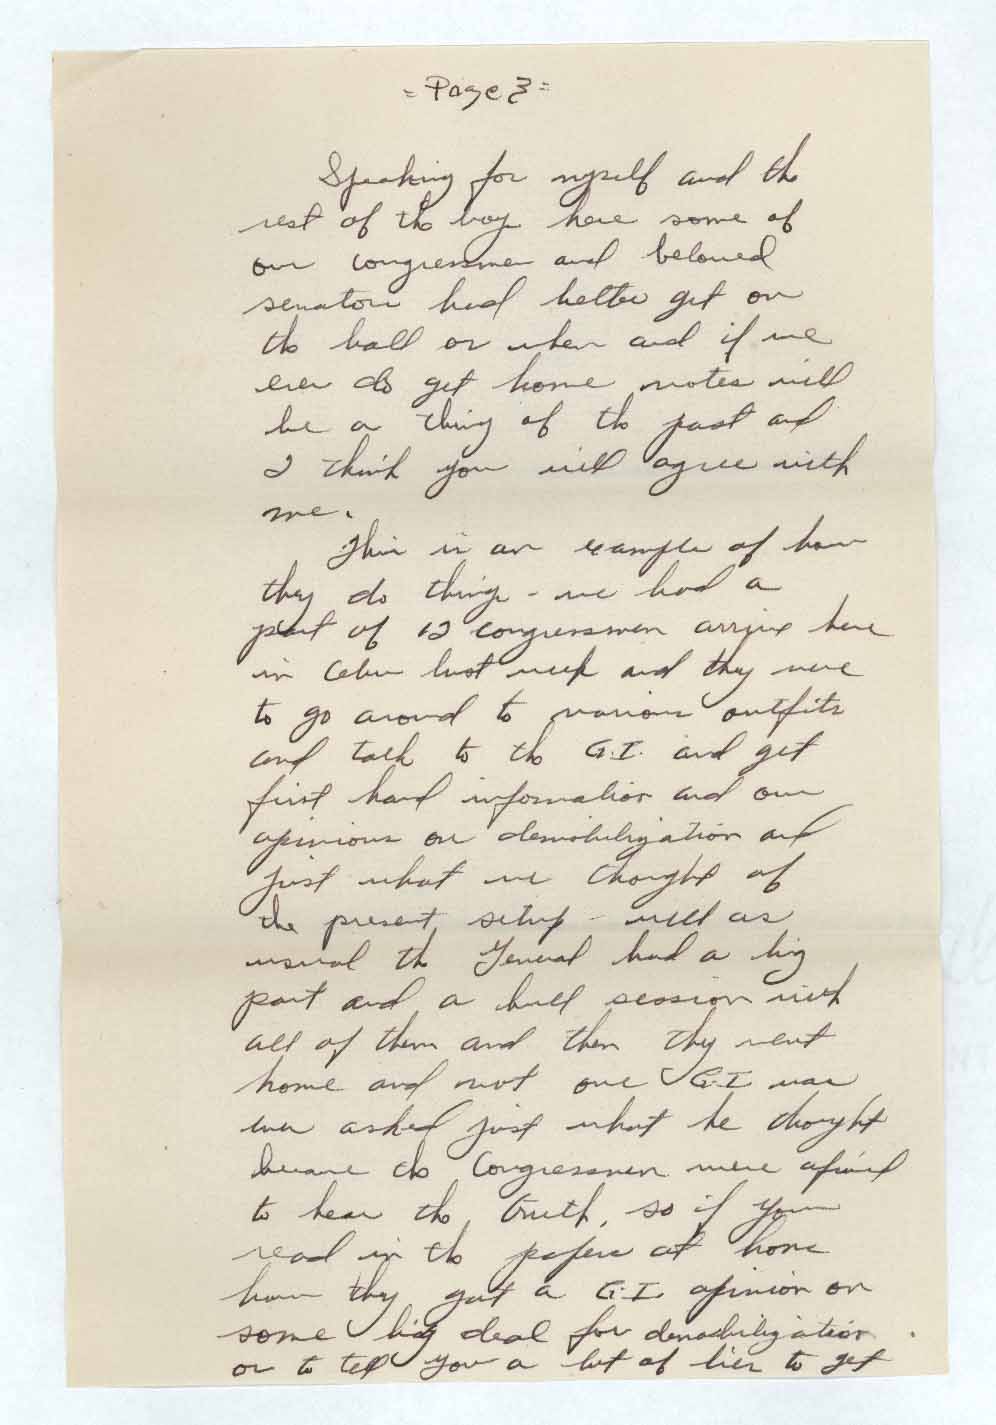 = Page 3 =
Speaking for myself and the
rest of the boys here some of
our congressmen and beloved
senators had better get on
the ball or when and if we
ever do get home votes will
be a thing of the past and
I think you will agree with
me.
This is an example of how
they do things - we had a
part of 12 congressmen arrive here
in Cebu last week and they were
to go around to various outfits
and talk to the G.I. and get
first hand information and our
opinions on demobilization and
just what we thought of
the present setup - well as
usual the General had a big
part and a bull session with
all of them and then they went
home and not one G.I. was
ever asked just what he thought
because the Congressmen were afraid
to hear the truth, so if you
read in the papers at home
how they got a G.I. opinion on
some big deal for demobilization
or to tell you a lot of lies to get